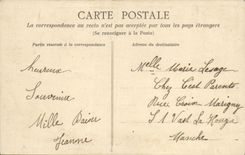 CARTE POSTALE
La correspondance au recto n'est pas acceptée par tous les pays étrangers
(Se renseigner à la Poste)
Partie réservée à la correspondance
Adresse du destinataire
heureux
Souvenir
Mille Baiser
Jeanne
Melle Marie Lesage
Chez Ces Parents
Rue Croix Marigny
St Vast La Hougue
Manche